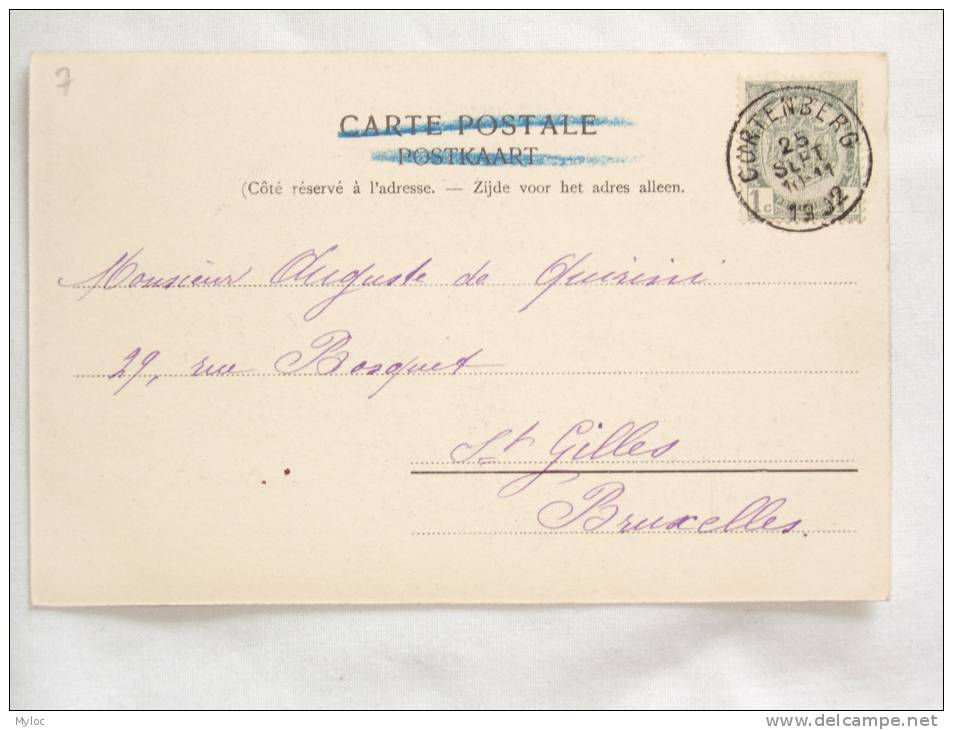 7
CARTE POSTALE
POSTKAART
(Côté réservé à l'adresse. — Zijde voor het adres alleen.
CORTENBERG
25
SEPT
10-11
1902
1c
Monsieur Auguste de Quirini
29, rue Bosquet
St Gilles
Bruxelles.
Myloc
www.delcampe.net